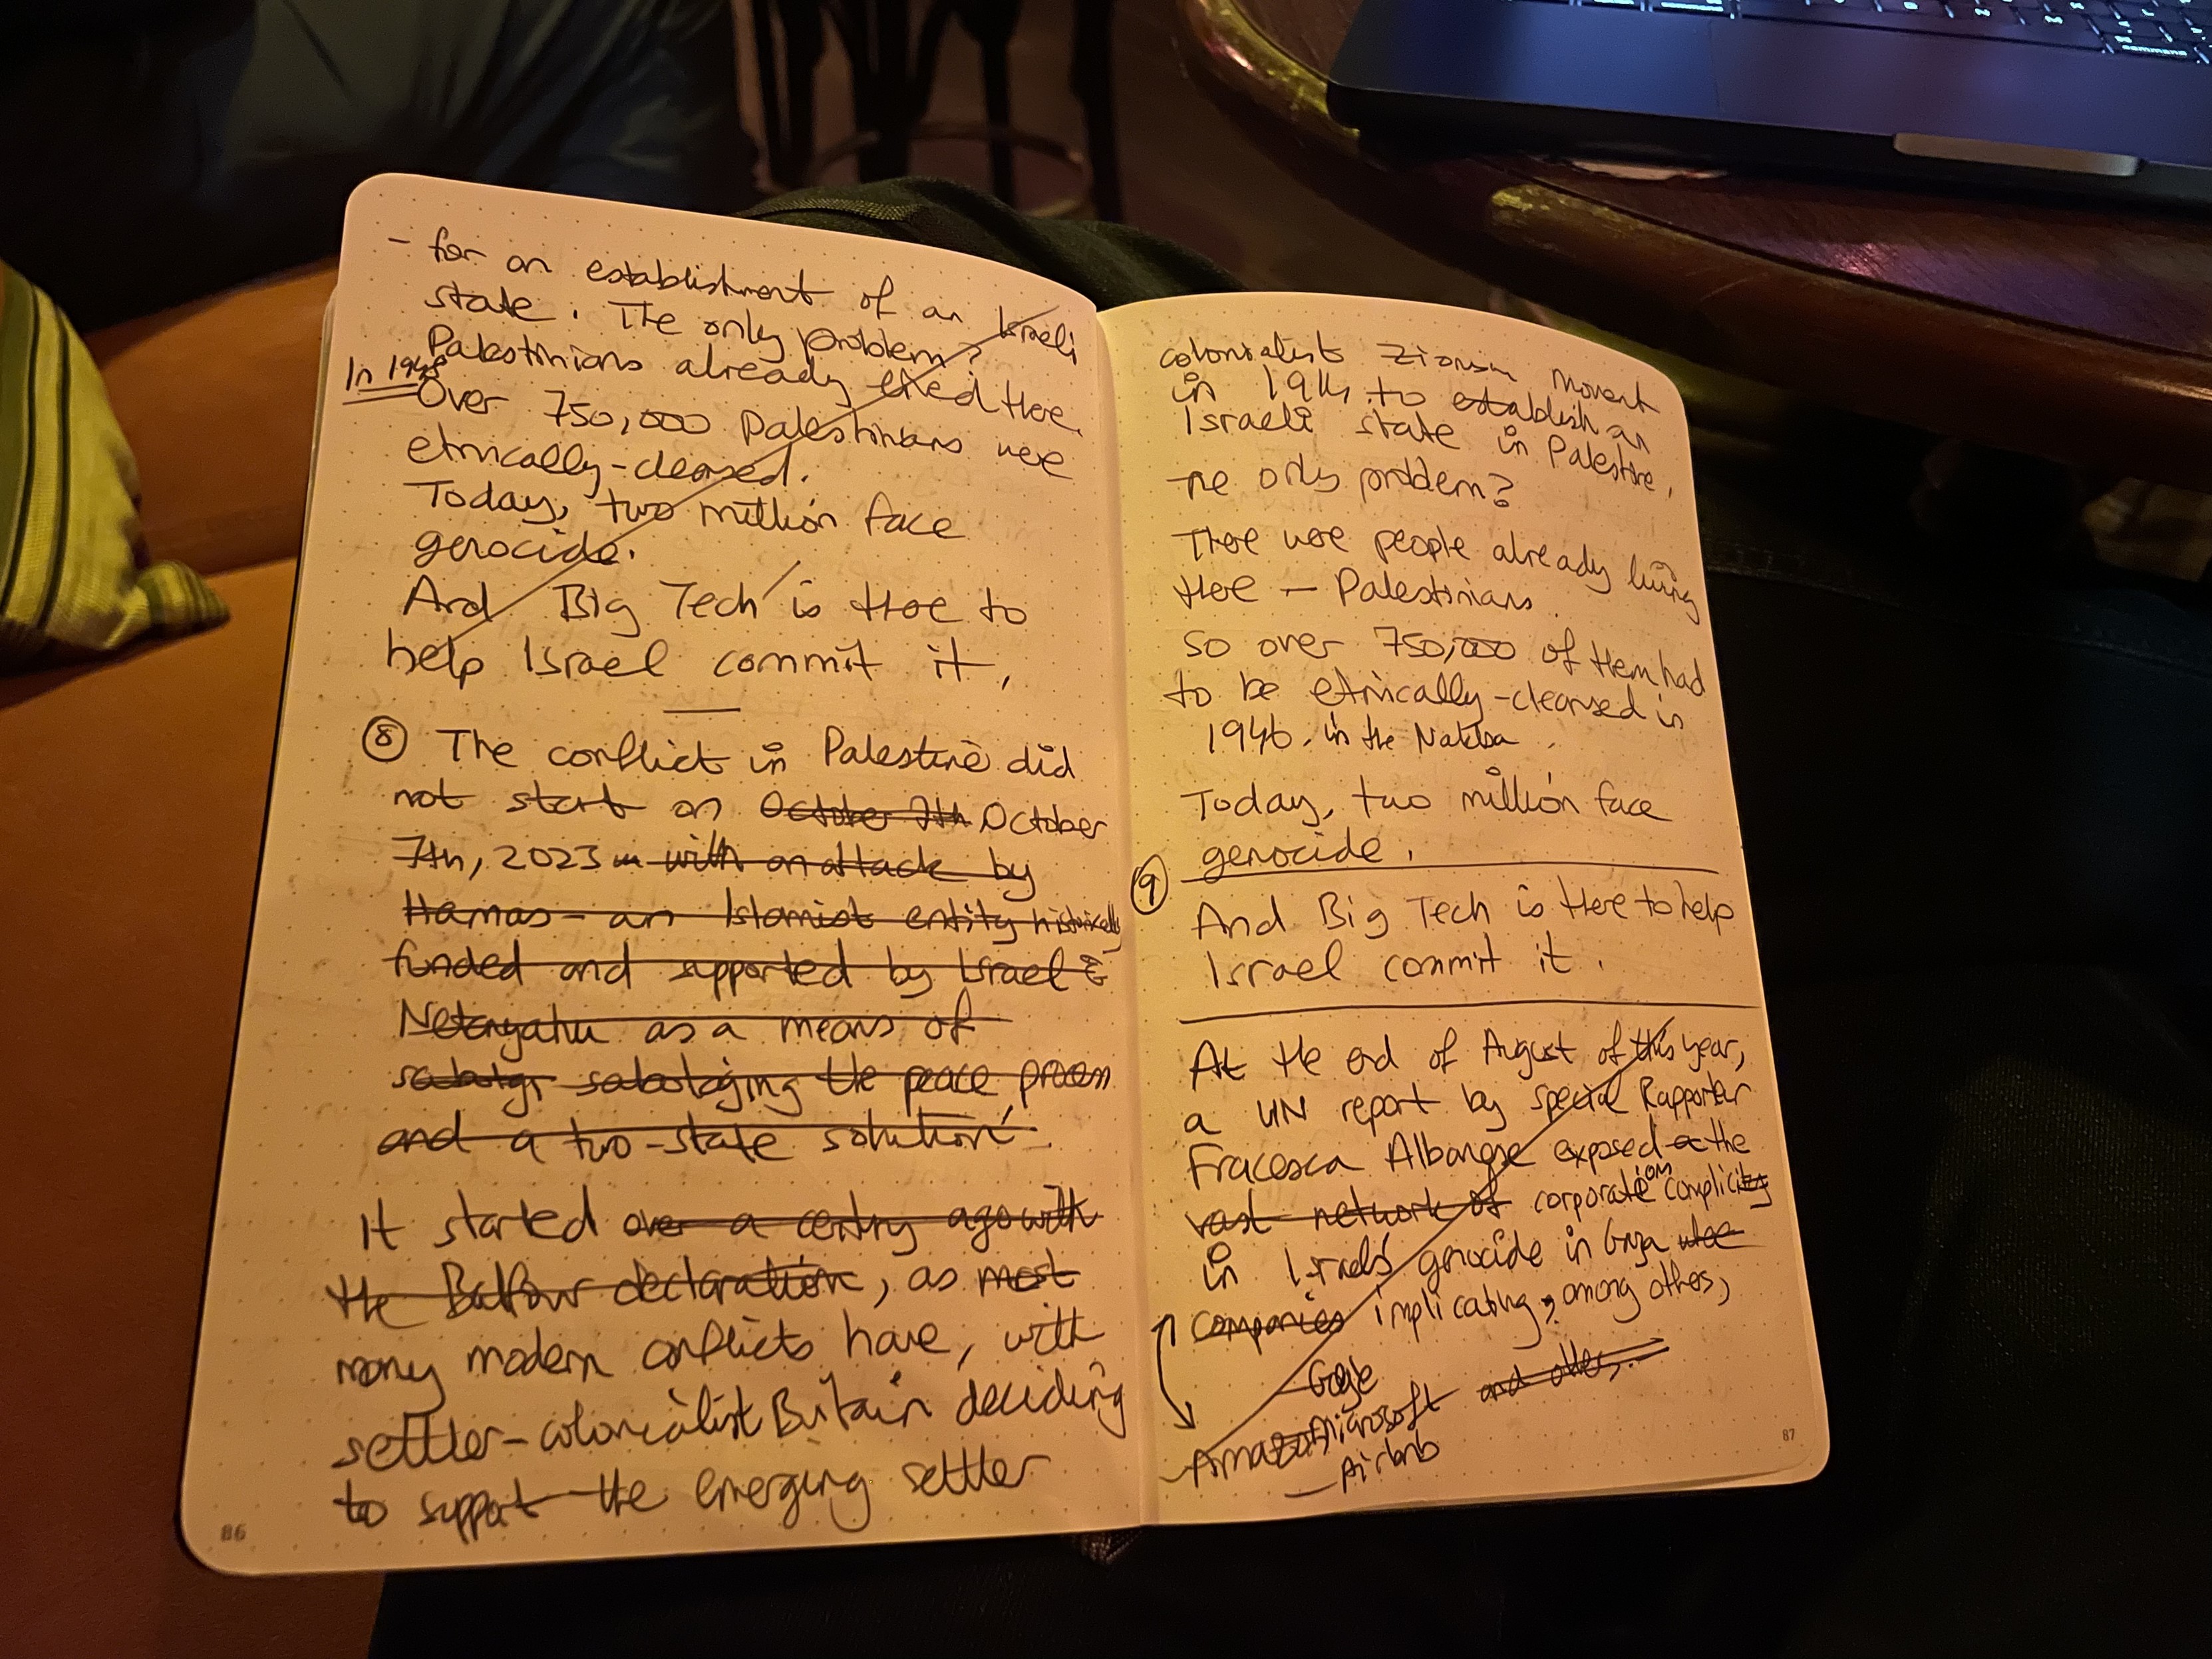 - for an establishment of an Israeli
state. The only problem?
Palestinians already lived there.
In 1948
Over 750,000 Palestinians were
etnically-cleansed.
Today, two million face
genocide.
And Big Tech is there to
help Israel commit it.
8 The conflict in Palestine did
not start on October 7th October
7th, 2023 with an attack by
Hamas - an Islamist entity historically
funded and supported by Israel &
Netanyahu as a means of
sabotaging the peace process
and a two-state solution.
It started over a century ago with
the Balfour declaration, as most
many modern conflicts have, with
settler-colonialist Britain deciding
to support the emerging settler
86
colonialist Zionism movent
in 1914 to establish an
Israeli state in Palestine.
The only problem?
There were people already living
there - Palestinians.
So over 750,000 of them had
to be etnically-cleansed in
1946. in the Nakba.
Today, two million face
genocide.
9
And Big Tech is there to help
Israel commit it.
At the end of August of this year,
a UN report by special Rapporter
Fracesca Albanese exposed a the
vast network of corporate complicity
in Israel's genocide in Gaza
companies implicating, among others,
- Google
- Amazon Microsoft and others.
- Airbnb
87
command